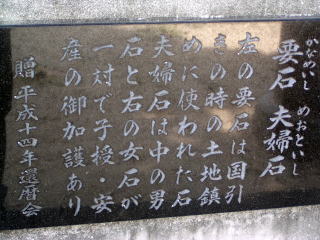 かなめいし めおといし
要石 夫婦石
左の要石は国引
きの時の土地鎮
めに使われた石
夫婦石は中の男
石と右の女石が
一対で子授・安
産の御加護あり
贈 平成十四年還暦会